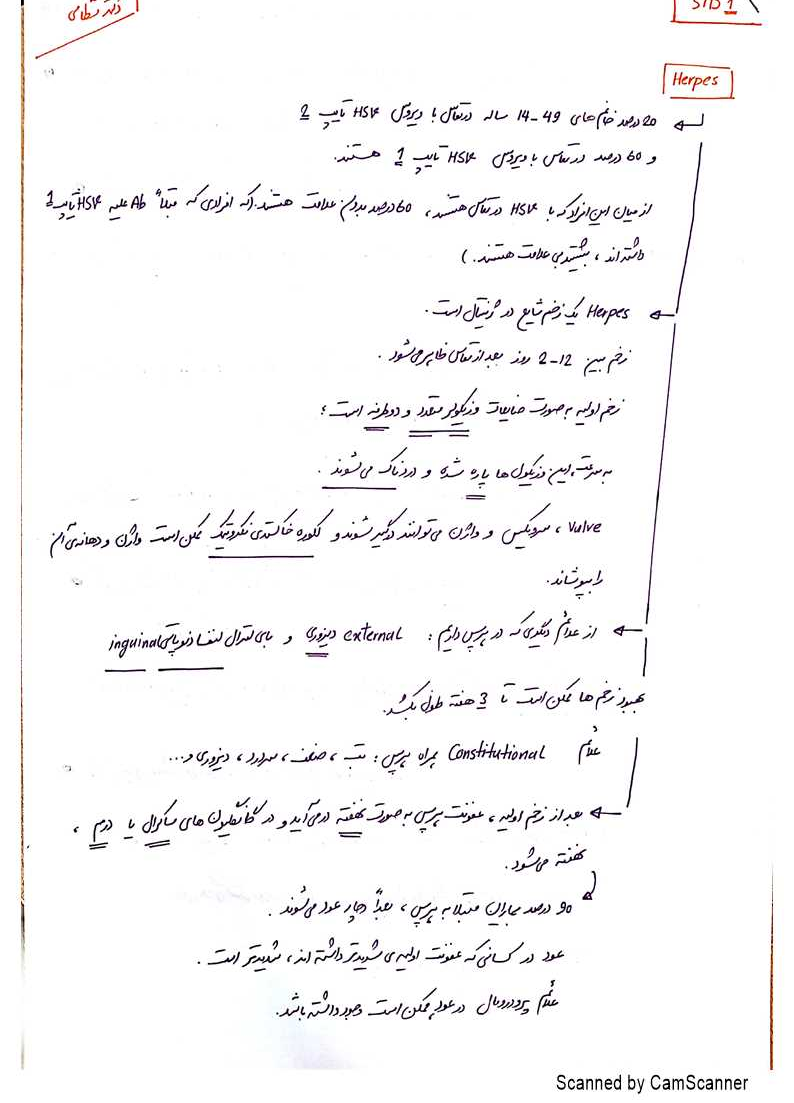 STD 1
دکتر نظامی
Herpes
20 درصد خانم های 49-14 ساله در تماس با ویروس HSV تایپ 2
و 60 درصد در تماس با ویروس HSV تایپ 1 هستند.
از میان این افراد که با HSV در تماس هستند، 60 درصد بدون علامت هستند. (که افرادی که قبلاً Ab علیه HSV تایپ 1
داشته اند، بیشتر بی علامت هستند.)
Herpes یک زخم شایع در ژنیتال است.
زخم بین 12-2 روز بعد از تماس ظاهر می شود.
زخم اولیه به صورت ضایعات وزیکولر متعدد و دوطرفه است؛
به سرعت، این وزیکول ها پاره شده و دردناک می شوند.
Vulve، سرویکس و واژن می توانند درگیر شوند و خاکستری نکروتیک ممکن است واژن و دهانه ی آن
را بپوشاند.
از علائم دیگری که در هرپس داریم: external دیزوری و بای لترال لنفادنوپاتی inguinal
بهبود زخم ها ممکن است تا 3 هفته طول بکشد.
علائم Constitutional همراه هرپس: تب، ضعف، سردرد، دیزوری و...
بعد از زخم اولیه، عفونت هرپس به صورت نهفته در می آید و در گانگلیون های ساکرال یا درم،
نهفته می شود.
90 درصد بیماران مبتلا به هرپس، بعداً دچار عود می شوند.
عود در کسانی که عفونت اولیه ی شدیدتر داشته اند، شدیدتر است.
علائم پرودرومال در عود ممکن است وجود داشته باشد.
Scanned by CamScanner